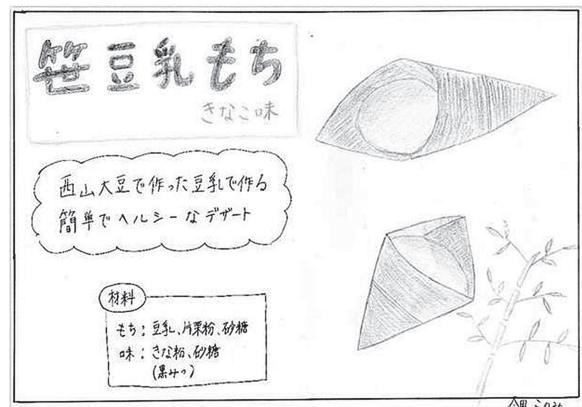 笹豆乳もち
きなこ味
西山大豆で作った豆乳で作る
簡単でヘルシーなデザート
材料
もち：豆乳、片栗粉、砂糖
味：きな粉、砂糖
(黒みつ)